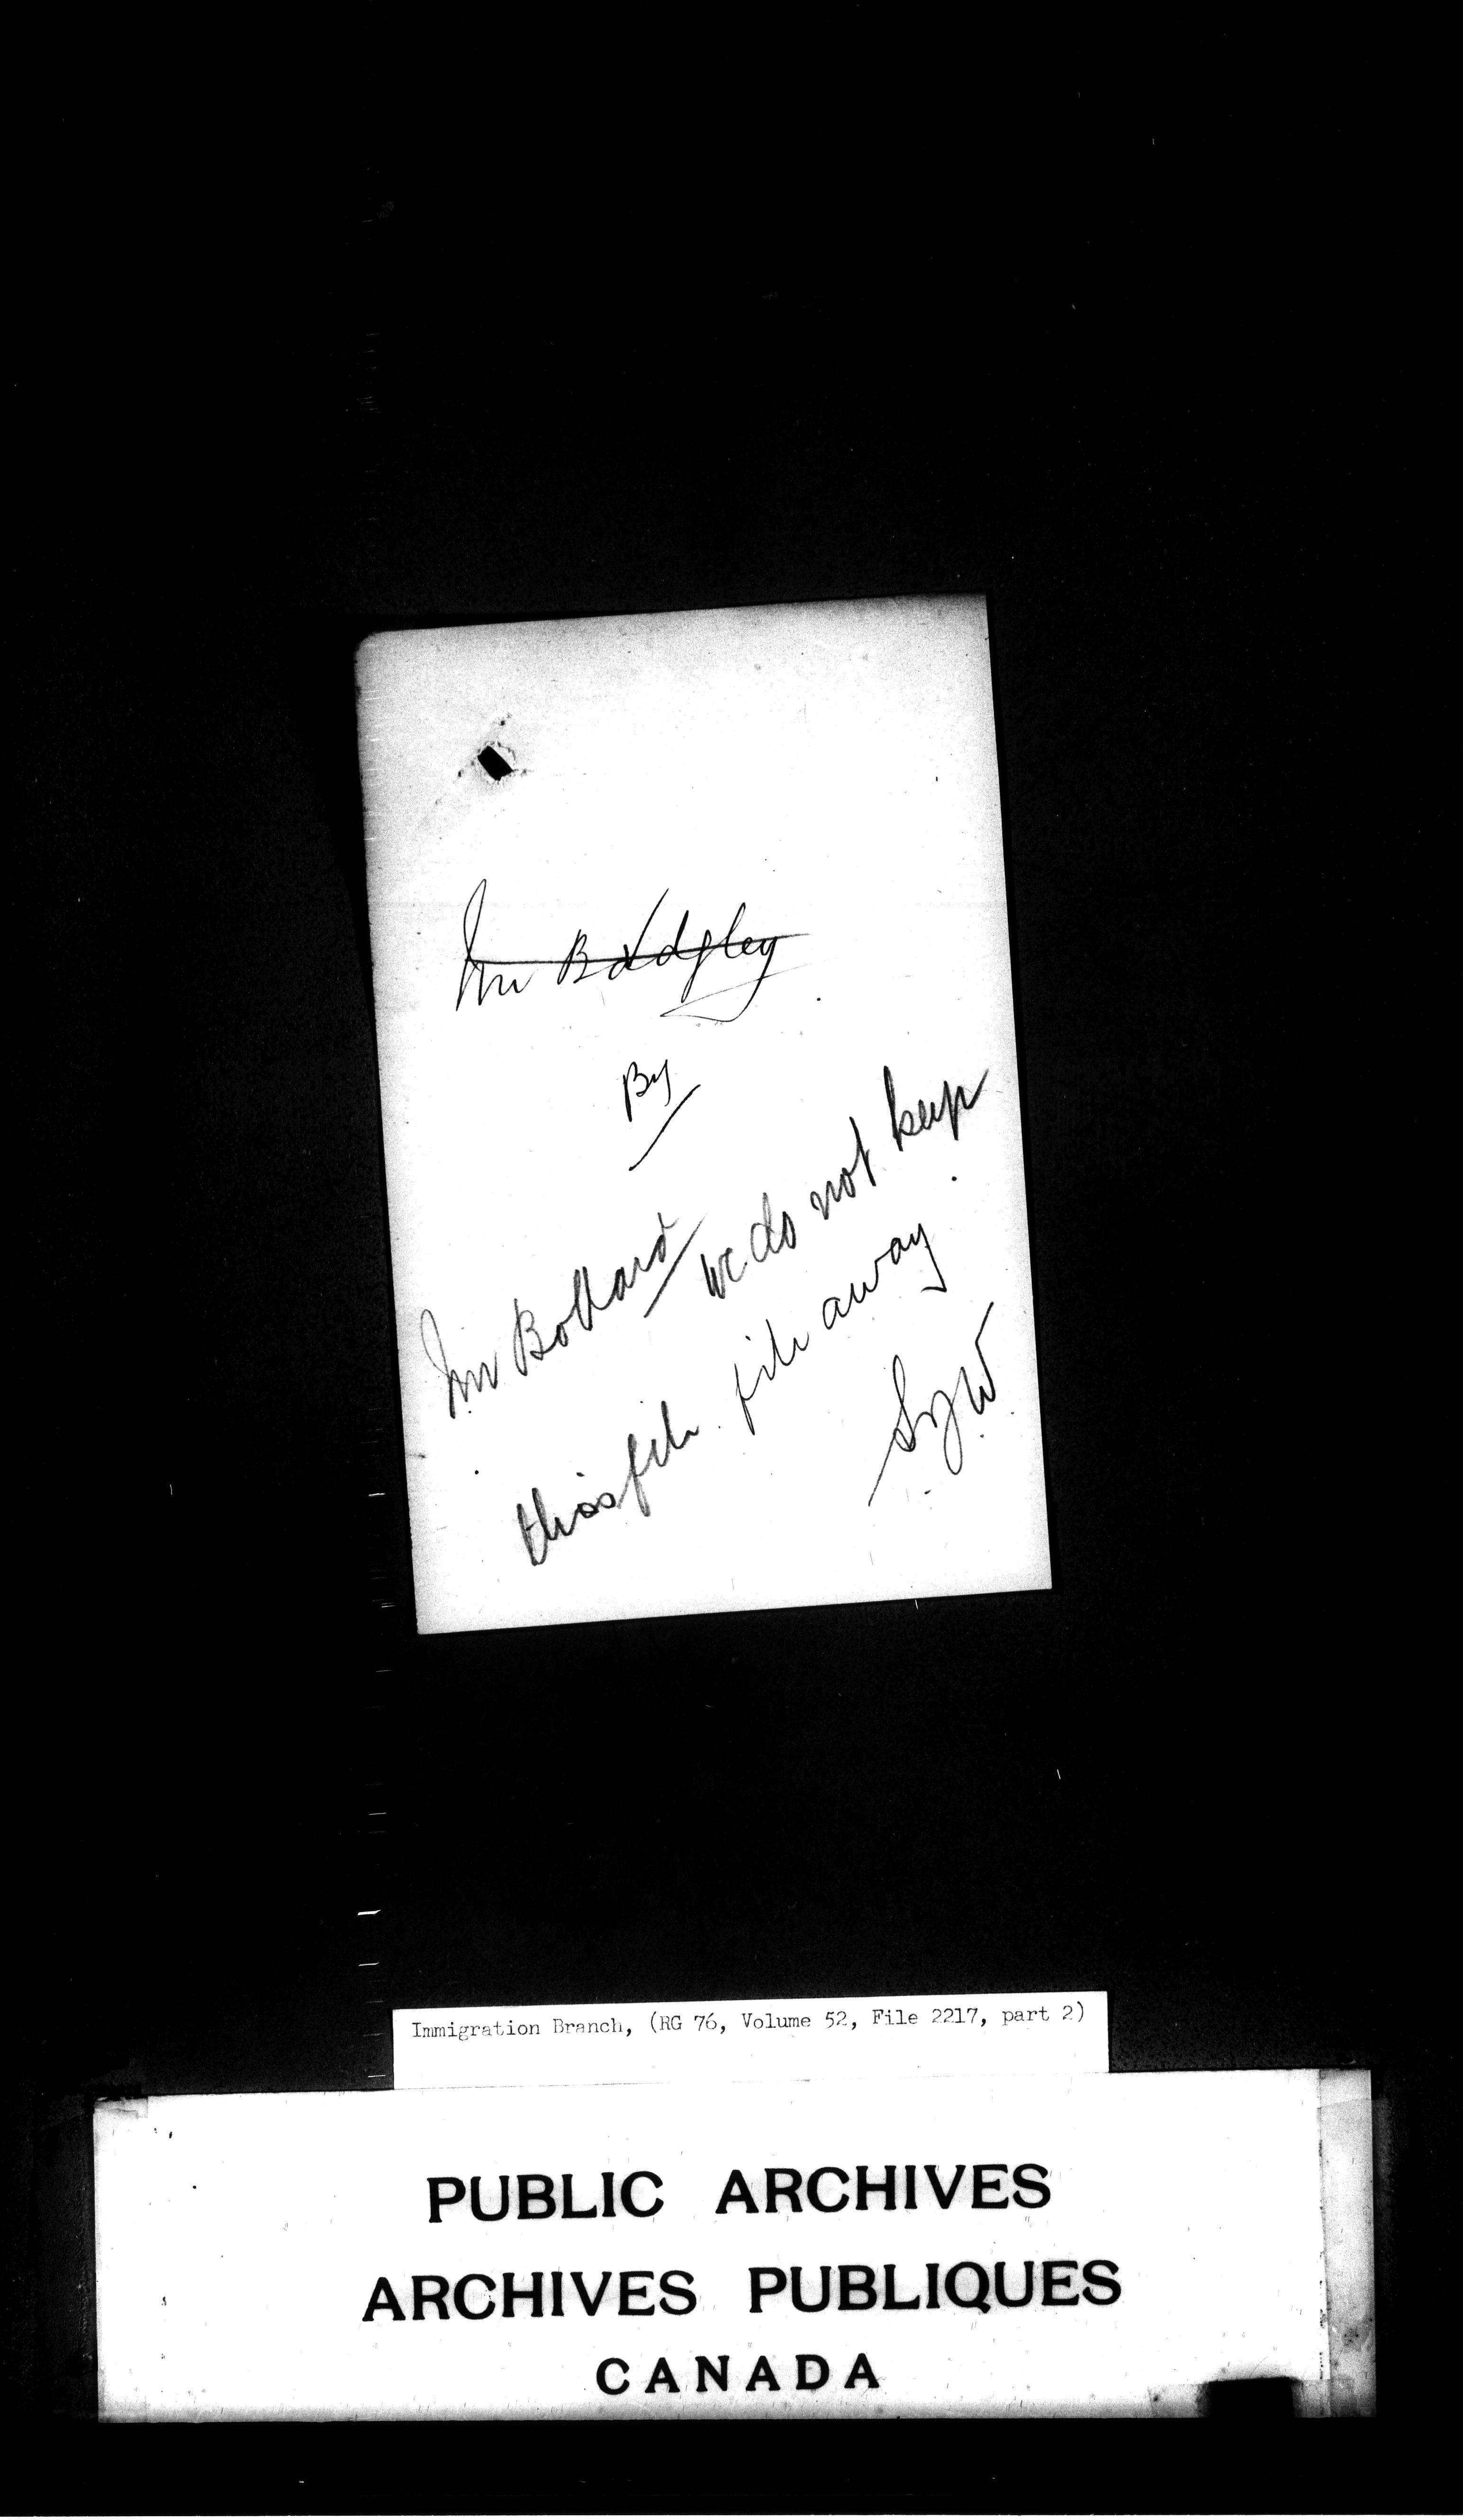 Mr Badgley
By
Mr Bollard we do not keep
this file. file away
Immigration Branch, (RG 76, Volume 52, File 2217, part 2)
PUBLIC ARCHIVES
ARCHIVES PUBLIQUES
CANADA